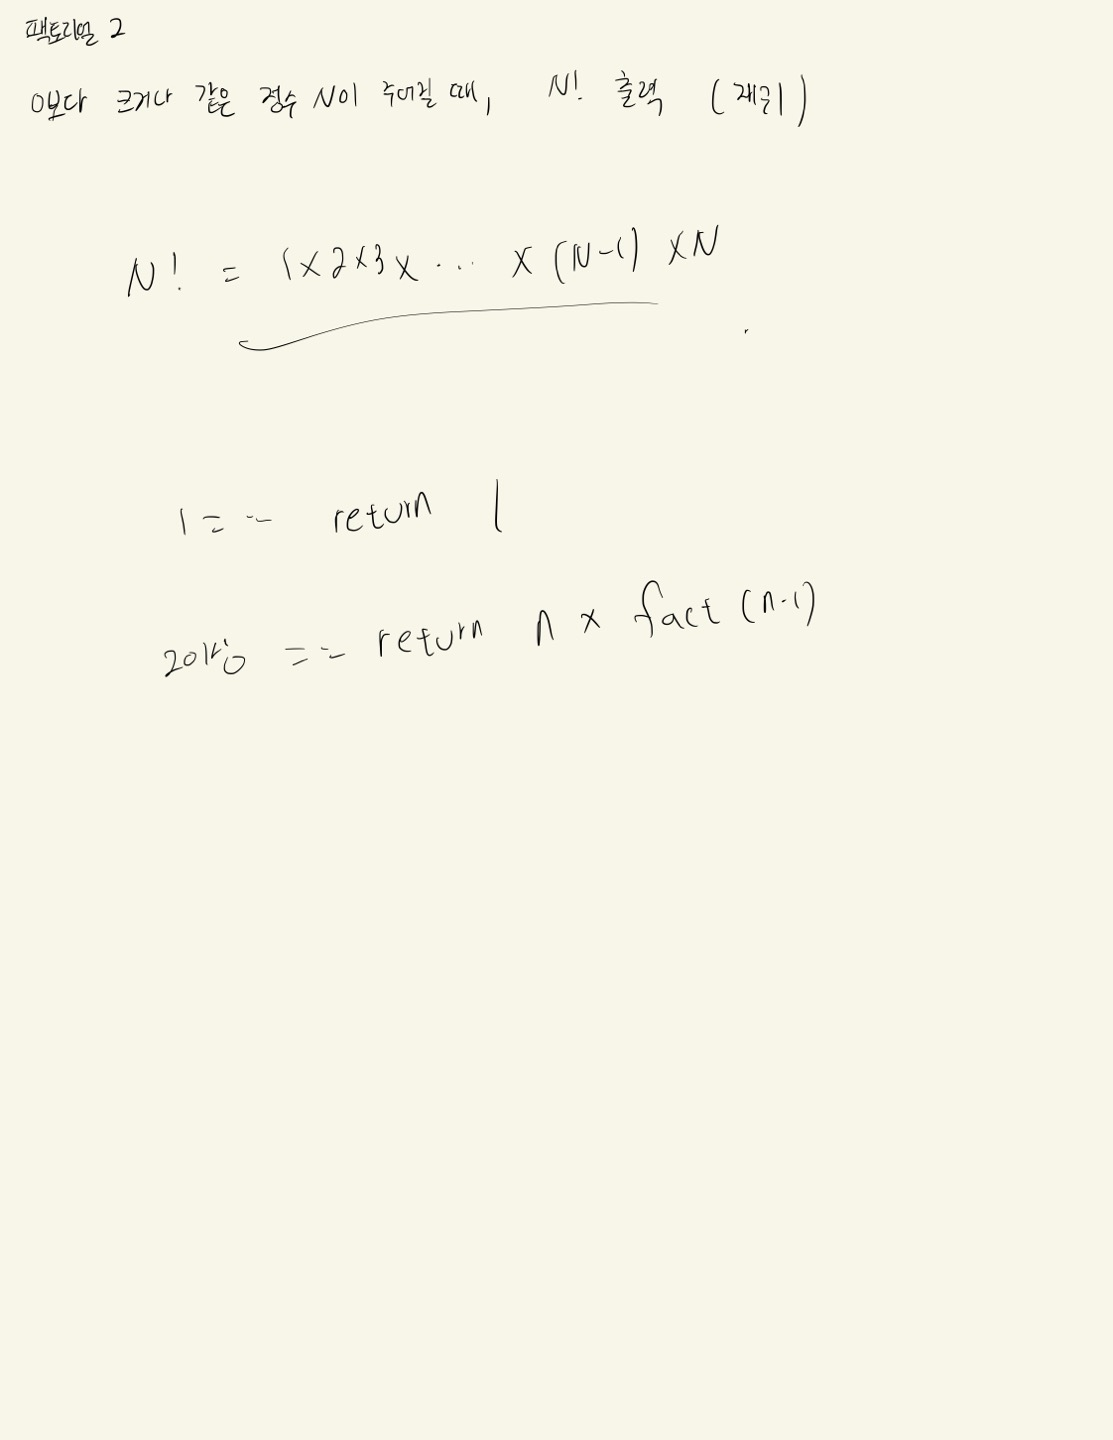 팩토리얼 2
0보다 크거나 같은 정수 N이 주어질 때, N! 출력 (재귀)
N! = 1×2×3× ... × (N-1) ×N
1 == return 1
2이상 == return n × fact (n-1)